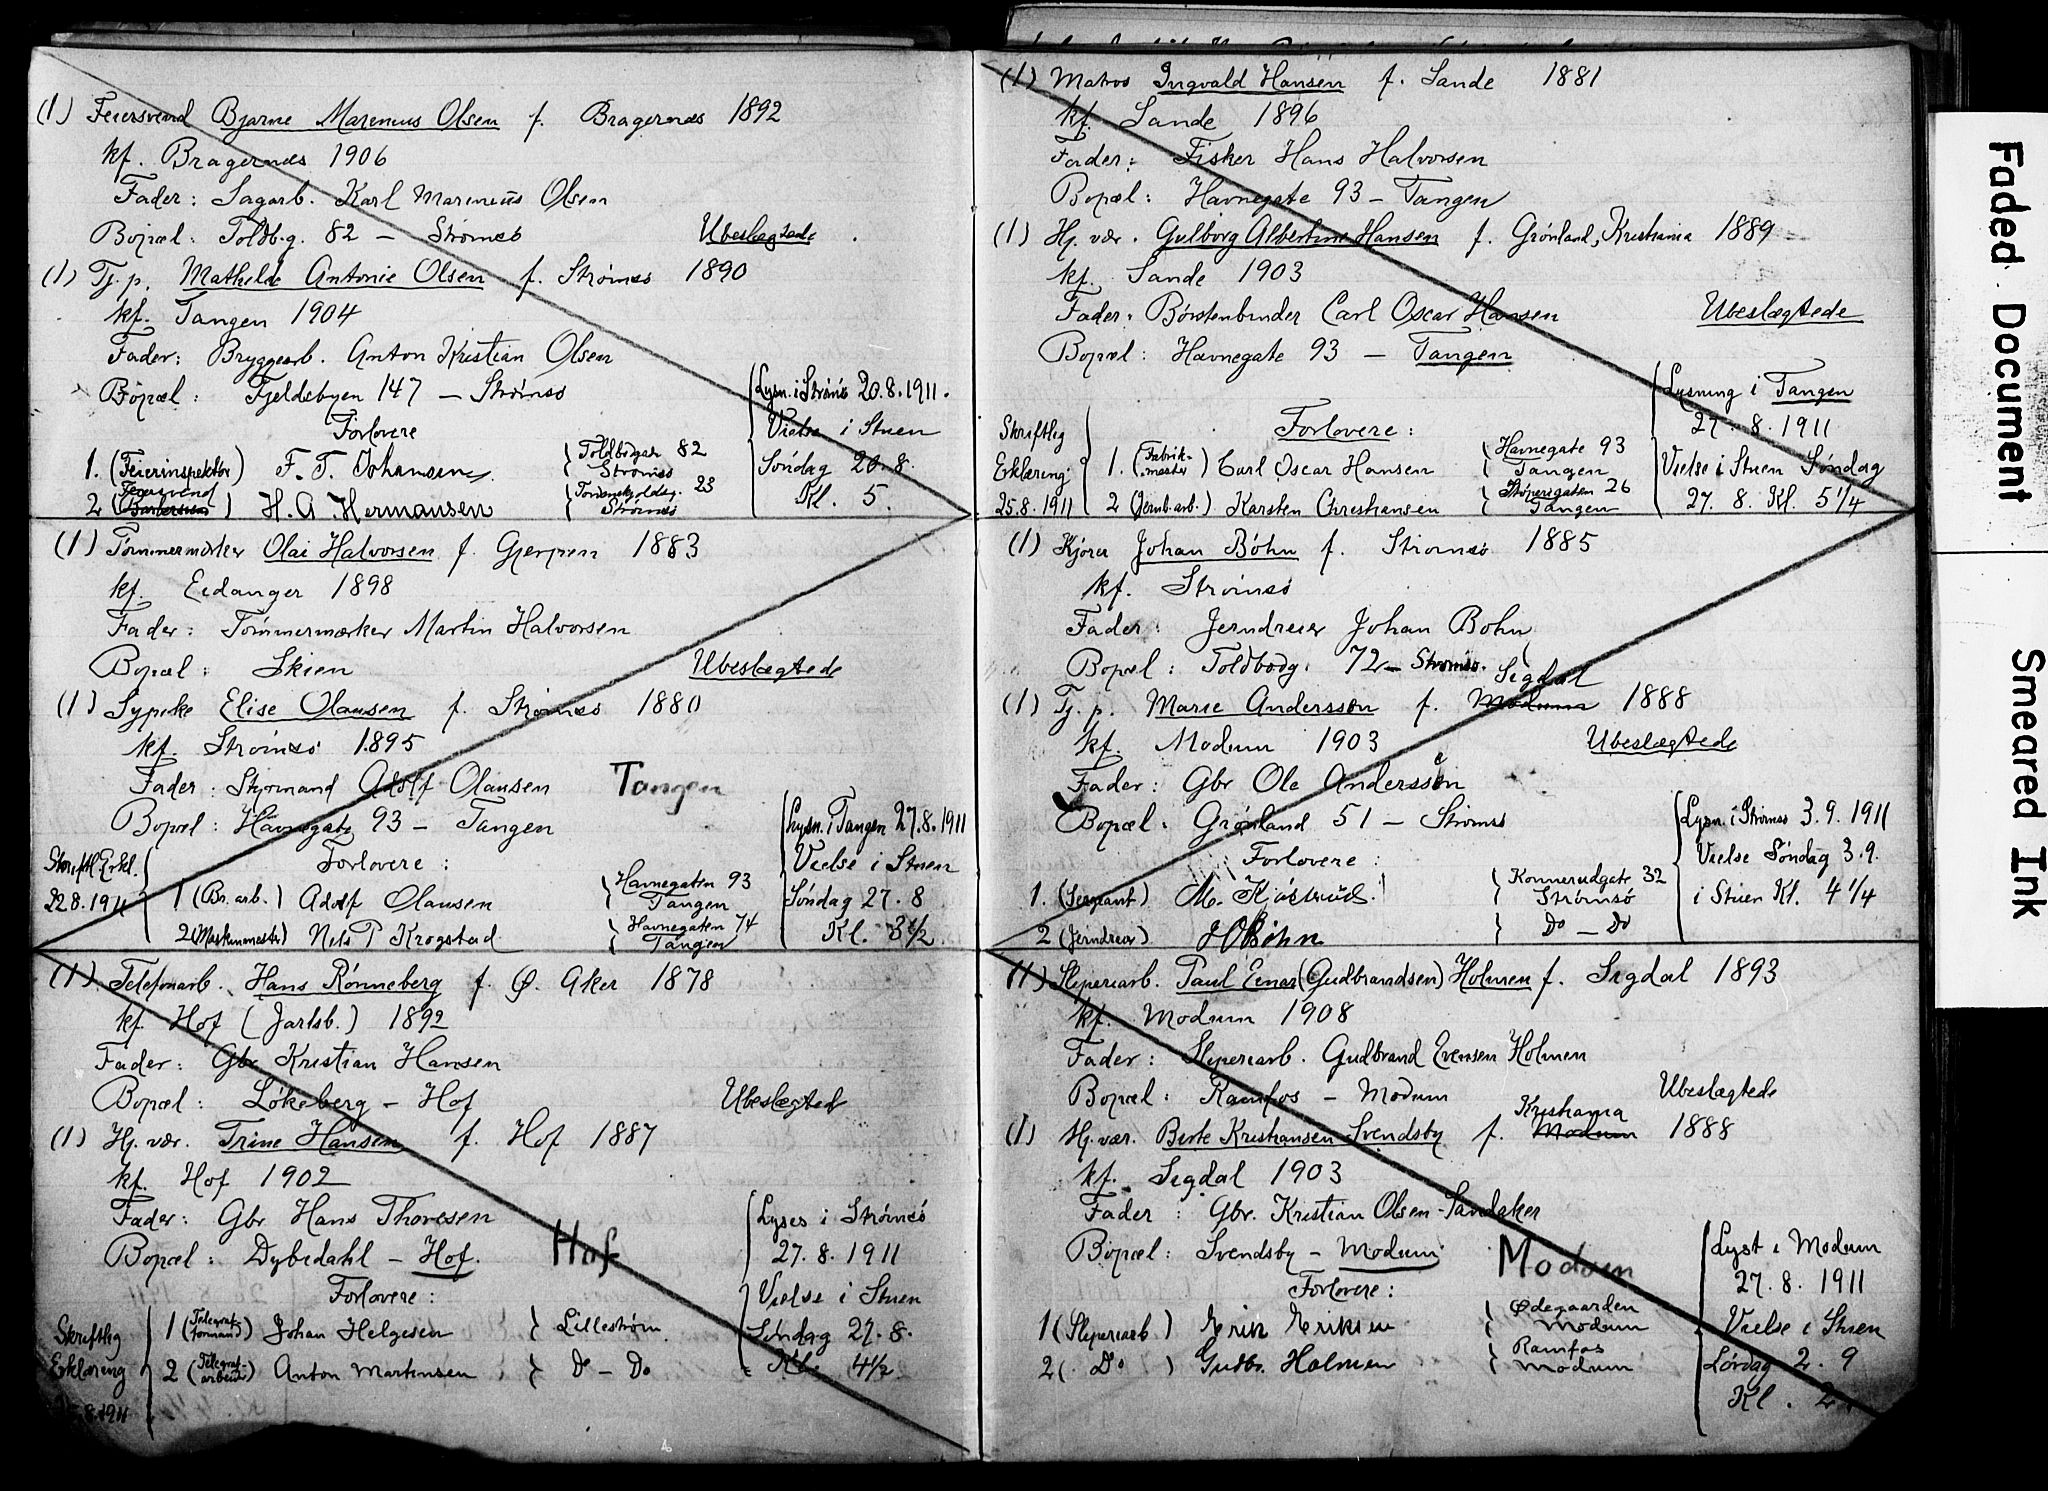 (1) Feiersvend Bjarne Marinius Olsen f. Bragernes 1892
kf. Bragernes 1906
Fader: Sagarb. Karl Marinius Olsen
Bopæl: Toldbg. 82 — Strømsø Ubeslægtede
(1) Tj. p. Mathilde Antonie Olsen f. Strømsø 1890
kf. Tangen 1904
Fader: Bryggearb. Anton Kristian Olsen
Bopæl: Fjeldsbyen 147 — Strømsø
Lysn. i Strømsø 20.8.1911.
Vielse i Stuen
Søndag 20.8.
Kl. 5.
Forlovere
1. (Feierinspektør) F. T. Johansen Toldbodgade 82 Strømsø
2 (Feiersvend) H. A. Hermansen Tordenskjoldsg. 23 Strømsø
(1) Tømmermærker Olai Halvorsen f. Gjerpen 1883
kf. Eidanger 1898
Fader: Tømmermærker Martin Halvorsen
Bopæl: Skien Ubeslægtede
(1) Sypike Elise Olausen f. Strømsø 1880
kf. Strømsø 1895
Fader: Styrmand Adolf Olausen Tangen
Bopæl: Havnegate 93 — Tangen
Lysn. i Tangen 27.8.1911
Vielse i Stuen
Søndag 27.8
Kl. 3½
Skriftl. Erkl.
22.8.1911
Forlovere:
1 (Br. arb.) Adolf Olausen Havnegaten 93 Tangen
2 (Maskinmester) Nels P Krogstad Havnegaten 74 Tangen
(1) Telefonarb. Hans Rønneberg f. Ø. Aker 1878
kf. Hof (Jarlsb.) 1892
Fader: Gbr Kristian Hansen
Bopæl: Løkeberg — Hof Ubeslægted
(1) Hj. vær. Trine Hansen f. Hof 1887
kf. Hof 1902
Fader: Gbr Hans Thoresen
Bopæl: Dybedahl — Hof. Hof
Lyses i Strømsø
27.8.1911
Vielse i Stuen
Søndag 27.8.
Kl. 4½
Forlovere:
Skriftlig
Erklæring
8.1911
1 (Telegraf-formand) Johan Helgesen Lillestrøm
2 (Telegraf-arbeid) Anton Martinsen Do — Do
(1) Matros Ingvald Hansen f. Sande 1881
kf. Sande 1896
Fader: Fisker Hans Halvorsen
Bopæl: Havnegate 93 — Tangen
(1) Hj. vær. Gulborg Albertine Hansen f. Grønland, Kristiania 1889
kf. Sande 1903
Fader: Børstenbinder Carl Oscar Hansen Ubeslægtede
Bopæl: Havnegate 93 — Tangen
Lysning i Tangen
27.8.1911
Vielse i Stuen Søndag
27.8. Kl. 5¼
Skriftlig
Erklæring
25.8.1911
Forlovere:
1. (Fabrik-mester) Carl Oscar Hansen Havnegate 93 Tangen
2 (Jernb. arb.) Karsten Christiansen Støperigaten 26 Tangen
(1) Kjører Johan Bøhn f. Strømsø 1885
kf. Strømsø
Fader: Jerndreier Johan Bohn
Bopæl: Toldbodg. 72 — Strømsø.
Sigdal
(1) Tj. p. Marie Andersson f. Modum 1888
kf. Modum 1903 Ubeslægtede
Fader: Gbr Ole Anderssen
Bopæl: Grønland 51 — Strømsø
Lysn. i Strømsø 3.9.1911
Vielse Søndag 3.9.
i Stuen Kl. 4¼
Forlovere:
1. (Sergeant) M. Kjøstrud Konnerudgate 32 Strømsø
2 (Jerndreier) J Bøhn Do — Do
(1) Sliperiarb. Paul Einar (Gudbrandsen) Holmen f. Sigdal 1893
kf. Modum 1908
Fader: Sliperiarb. Gudbrand Evensen Holmen
Bopæl: Ramfos — Modum Ubeslægtede
Kristiania
(1) Hj. vær. Berte Kristiansen Svendsby f. Modum 1888
kf. Sigdal 1903
Fader: Gbr. Kristian Olsen Sandaker
Bopæl: Svendsby — Modum Modum
Lyst i Modum
27.8.1911
Vielse i Stuen
Lørdag 2.9
Kl. 2
Forlovere:
1 (Sliperiarb) Erik Eriksen Ødegaarden Modum
2 (Do) Gudbr. Holmen Ramfos Modum
Faded Document
Smeared Ink